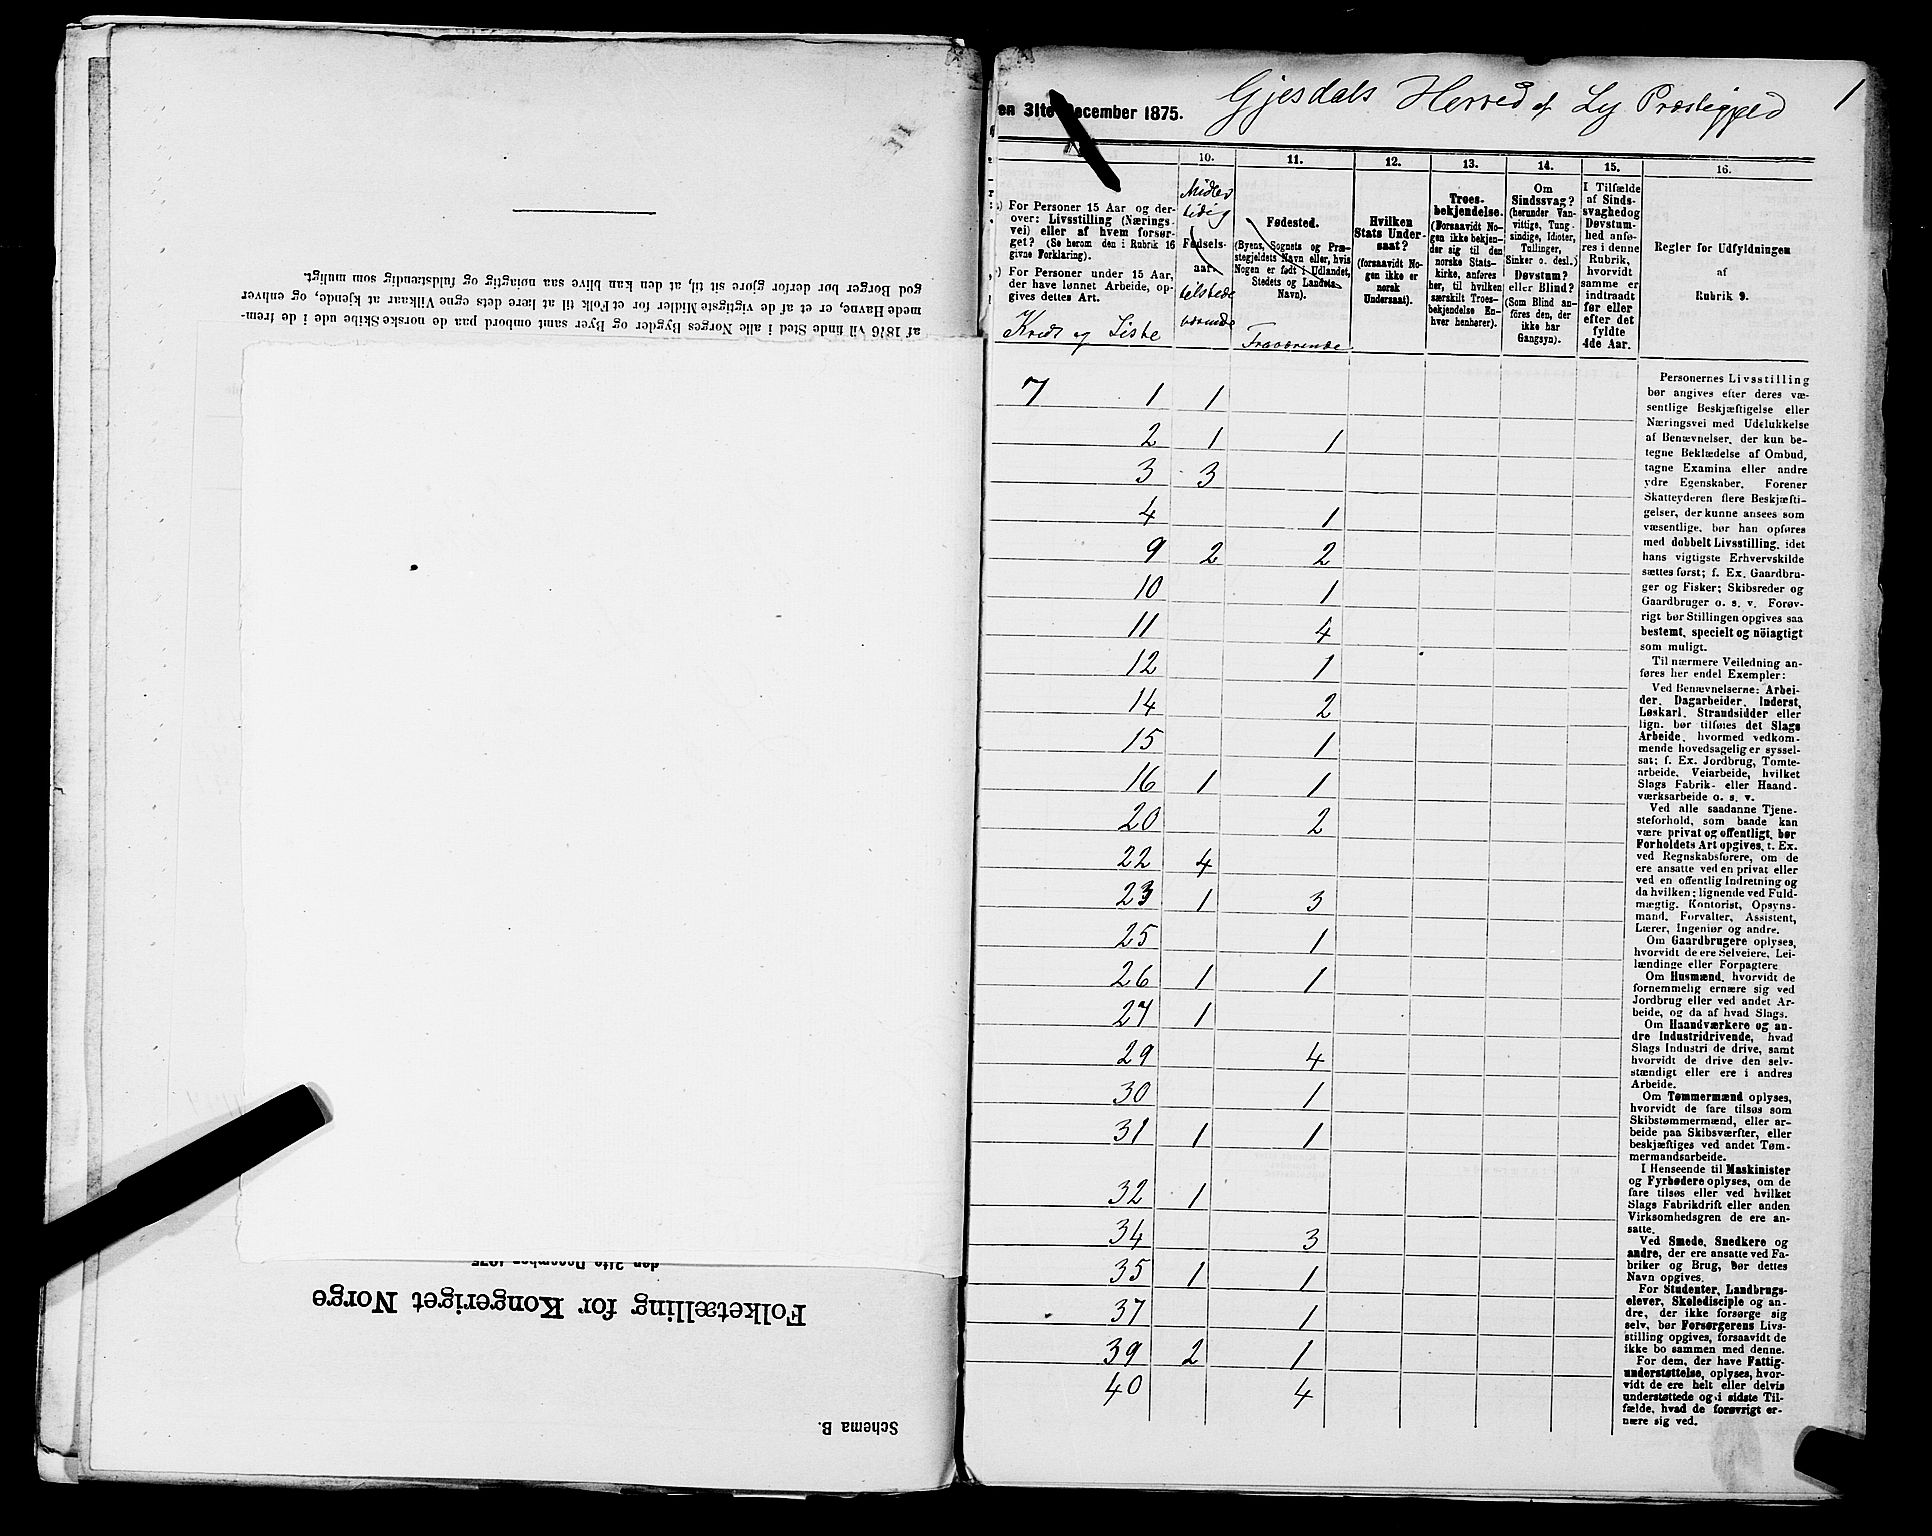 af 1876 vil finde Sted i alle Norges Bygder og Byer samt ombord paa de norske Skibe ude i de frem-
mede Havne, er et af de vigtigste Midler for et Folk til at lære dets egne Vilkaar at kjende, og enhver
god Borger bør derfor gjøre sit til, at den kan blive saa nøiagtig og fuldstændig som muligt.
den 31te December 1875
Folketælling for Kongeriget Norge
Schema B.
en 31te December 1875.
Gjesdals Herred af Ly Præstegjeld
1
10.
11.
12.
13.
14.
15.
16.
For Personer 15 Aar og der-
over: Livsstilling (Nærings-
vei) eller af hvem forsør-
get? (Se herom den i Rubrik 16
givne Forklaring).
For Personer under 15 Aar,
der have lønnet Arbeide, op-
gives dettes Art.
Kreds og Liste
Midler
tidig
Fødsels-
aar.
tilstede
værende
Fødested.
(Byens, Sognets og Præ-
stegjeldets Navn eller, hvis
Nogen er født i Udlandet,
Stedets og Landets
Navn).
Fraværende
Hvilken
Stats Under-
saat?
(forsaavidt No-
gen ikke er
norsk
Undersaat).
Troes-
bekjendelse.
(Forsaavidt No-
gen ikke bekjen-
der sig til den
norske Stats-
kirke, anføres
her, til hvilken
særskilt Troes-
bekjendelse En-
hver henhører).
Om
Sindssvag?
(herunder Van-
vittige, Tung-
sindige, Idioter,
Tullinger,
Sinker o. desl.)
Døvstum?
eller Blind?
(Som Blind an-
føres den, der
ikke har
Gangsyn).
I Tilfælde
af Sinds-
svaghed og
Døvstum-
hed anfø-
res i denne
Rubrik,
hvorvidt
samme er
indtraadt
før eller
efter det
fyldte
4de Aar.
Regler for Udfyldningen
af
Rubrik 9.
7 1 1
2 1 1
3 3
4 1
9 2 2
10 1
11 4
12 1
14 2
15 1
16 1 1
20 2
22 4
23 1 3
25 1
26 1 1
27 1
29 4
30 1
31 1 1
32 1
34 3
35 1 1
37 1
39 2 1
40 4
Personernes Livsstilling
bør angives efter deres væ-
sentlige Beskjæftigelse eller
Næringsvei med Udelukkelse
af Benævnelser, der kun be-
tegne Beklædelse af Ombud,
tagne Examina eller andre
ydre Egenskaber. Forener
Skatteyderen flere Beskjæfti-
gelser, der kunne ansees som
væsentlige, bør han opføres
med dobbelt Livsstilling, idet
hans vigtigste Erhvervskilde
sættes først; f. Ex. Gaardbru-
ger og Fisker; Skibsreder og
Gaardbruger o. s. v. Forøv-
rigt bør Stillingen opgives saa
bestemt, specielt og nöiagtigt
som muligt.
Til nærmere Veiledning an-
føres her endel Exempler:
Ved Benævnelserne: Arbei-
der, Dagarbeider, Inderst,
Løskarl, Strandsidder eller
lign. bør tilføies det Slags
Arbeide, hvormed vedkom-
mende hovedsagelig er syssel-
sat; f. Ex. Jordbrug, Tomte-
arbeide, Veiarbeide, hvilket
Slags Fabrik- eller Haand-
værksarbeide o. s. v.
Ved alle saadanne Tjene-
steforhold, som baade kan
være privat og offentligt, bør
Forholdets Art opgives, t. Ex.
ved Regnskabsførere, om de
ere ansatte ved en privat eller
ved en offentlig Indretning og
da hvilken; lignende ved Fuld-
mægtig, Kontorist, Opsyns-
mand, Forvalter, Assistent,
Lærer, Ingeniør og andre.
Om Gaardbrugere oplyses,
hvorvidt de ere Selveiere, Lei-
lændinge eller Forpagtere
Om Husmænd, hvorvidt de
fornemmelig ernære sig ved
Jordbrug eller ved andet Ar-
beide, og da af hvad Slags.
Om Haandværkere og an-
dre Industridrivende, hvad
Slags Industri de drive, samt
hvorvidt de drive den selv-
stændigt eller ere i andres
Arbeide.
Om Tømmermænd oplyses,
hvorvidt de fare tilsøs som
Skibstømmermænd, eller ar-
beide paa Skibsværfter, eller
beskjæftiges ved andet Tøm-
mermandsarbeide.
I Henseende til Maskinister
og Fyrbødere oplyses, om de
fare tilsøs eller ved hvilket
Slags Fabrikdrift eller anden
Virksomhedsgren de ere an-
satte.
Ved Smede, Snedkere og
andre, der ere ansatte ved Fa-
briker og Brug, bør dettes
Navn opgives.
For Studenter, Landbrugs-
elever, Skoledisciple og an-
dre, der ikke forsørge sig
selv, bør Forsørgerens Livs-
stilling opgives, forsaavidt de
ikke bo sammen med denne.
For dem, der have Fattig-
understøttelse, oplyses, hvor-
vidt de ere helt eller delvis
understøttede og i sidste Til-
fælde, hvad de forøvrigt er-
nære sig ved.